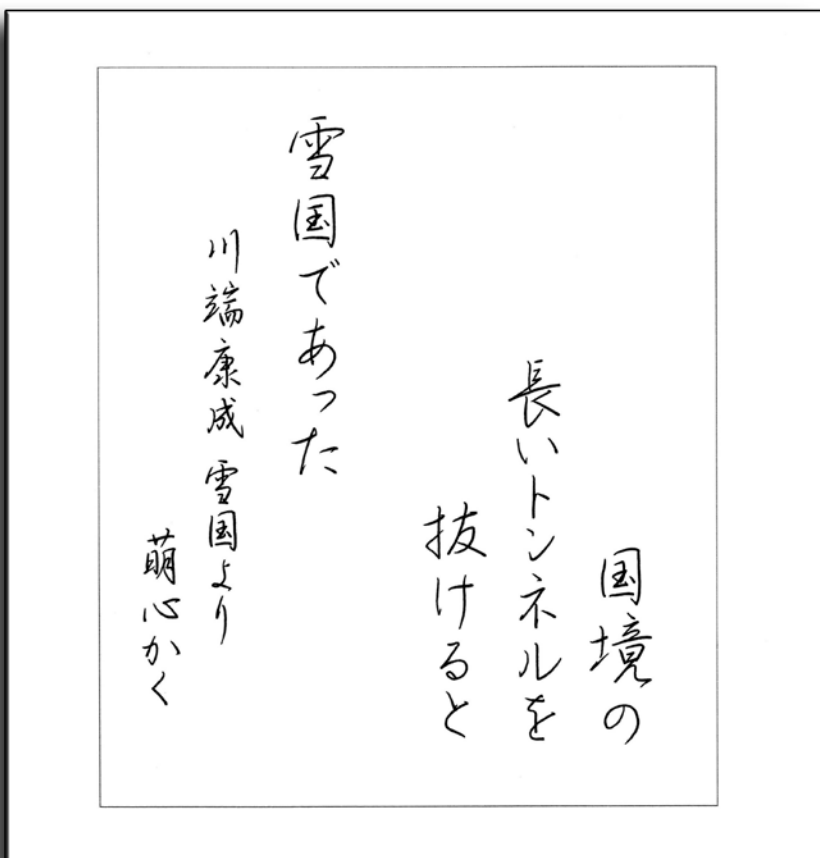 国境の
長いトンネルを
抜けると
雪国であった
川端康成 雪国より
萌心かく